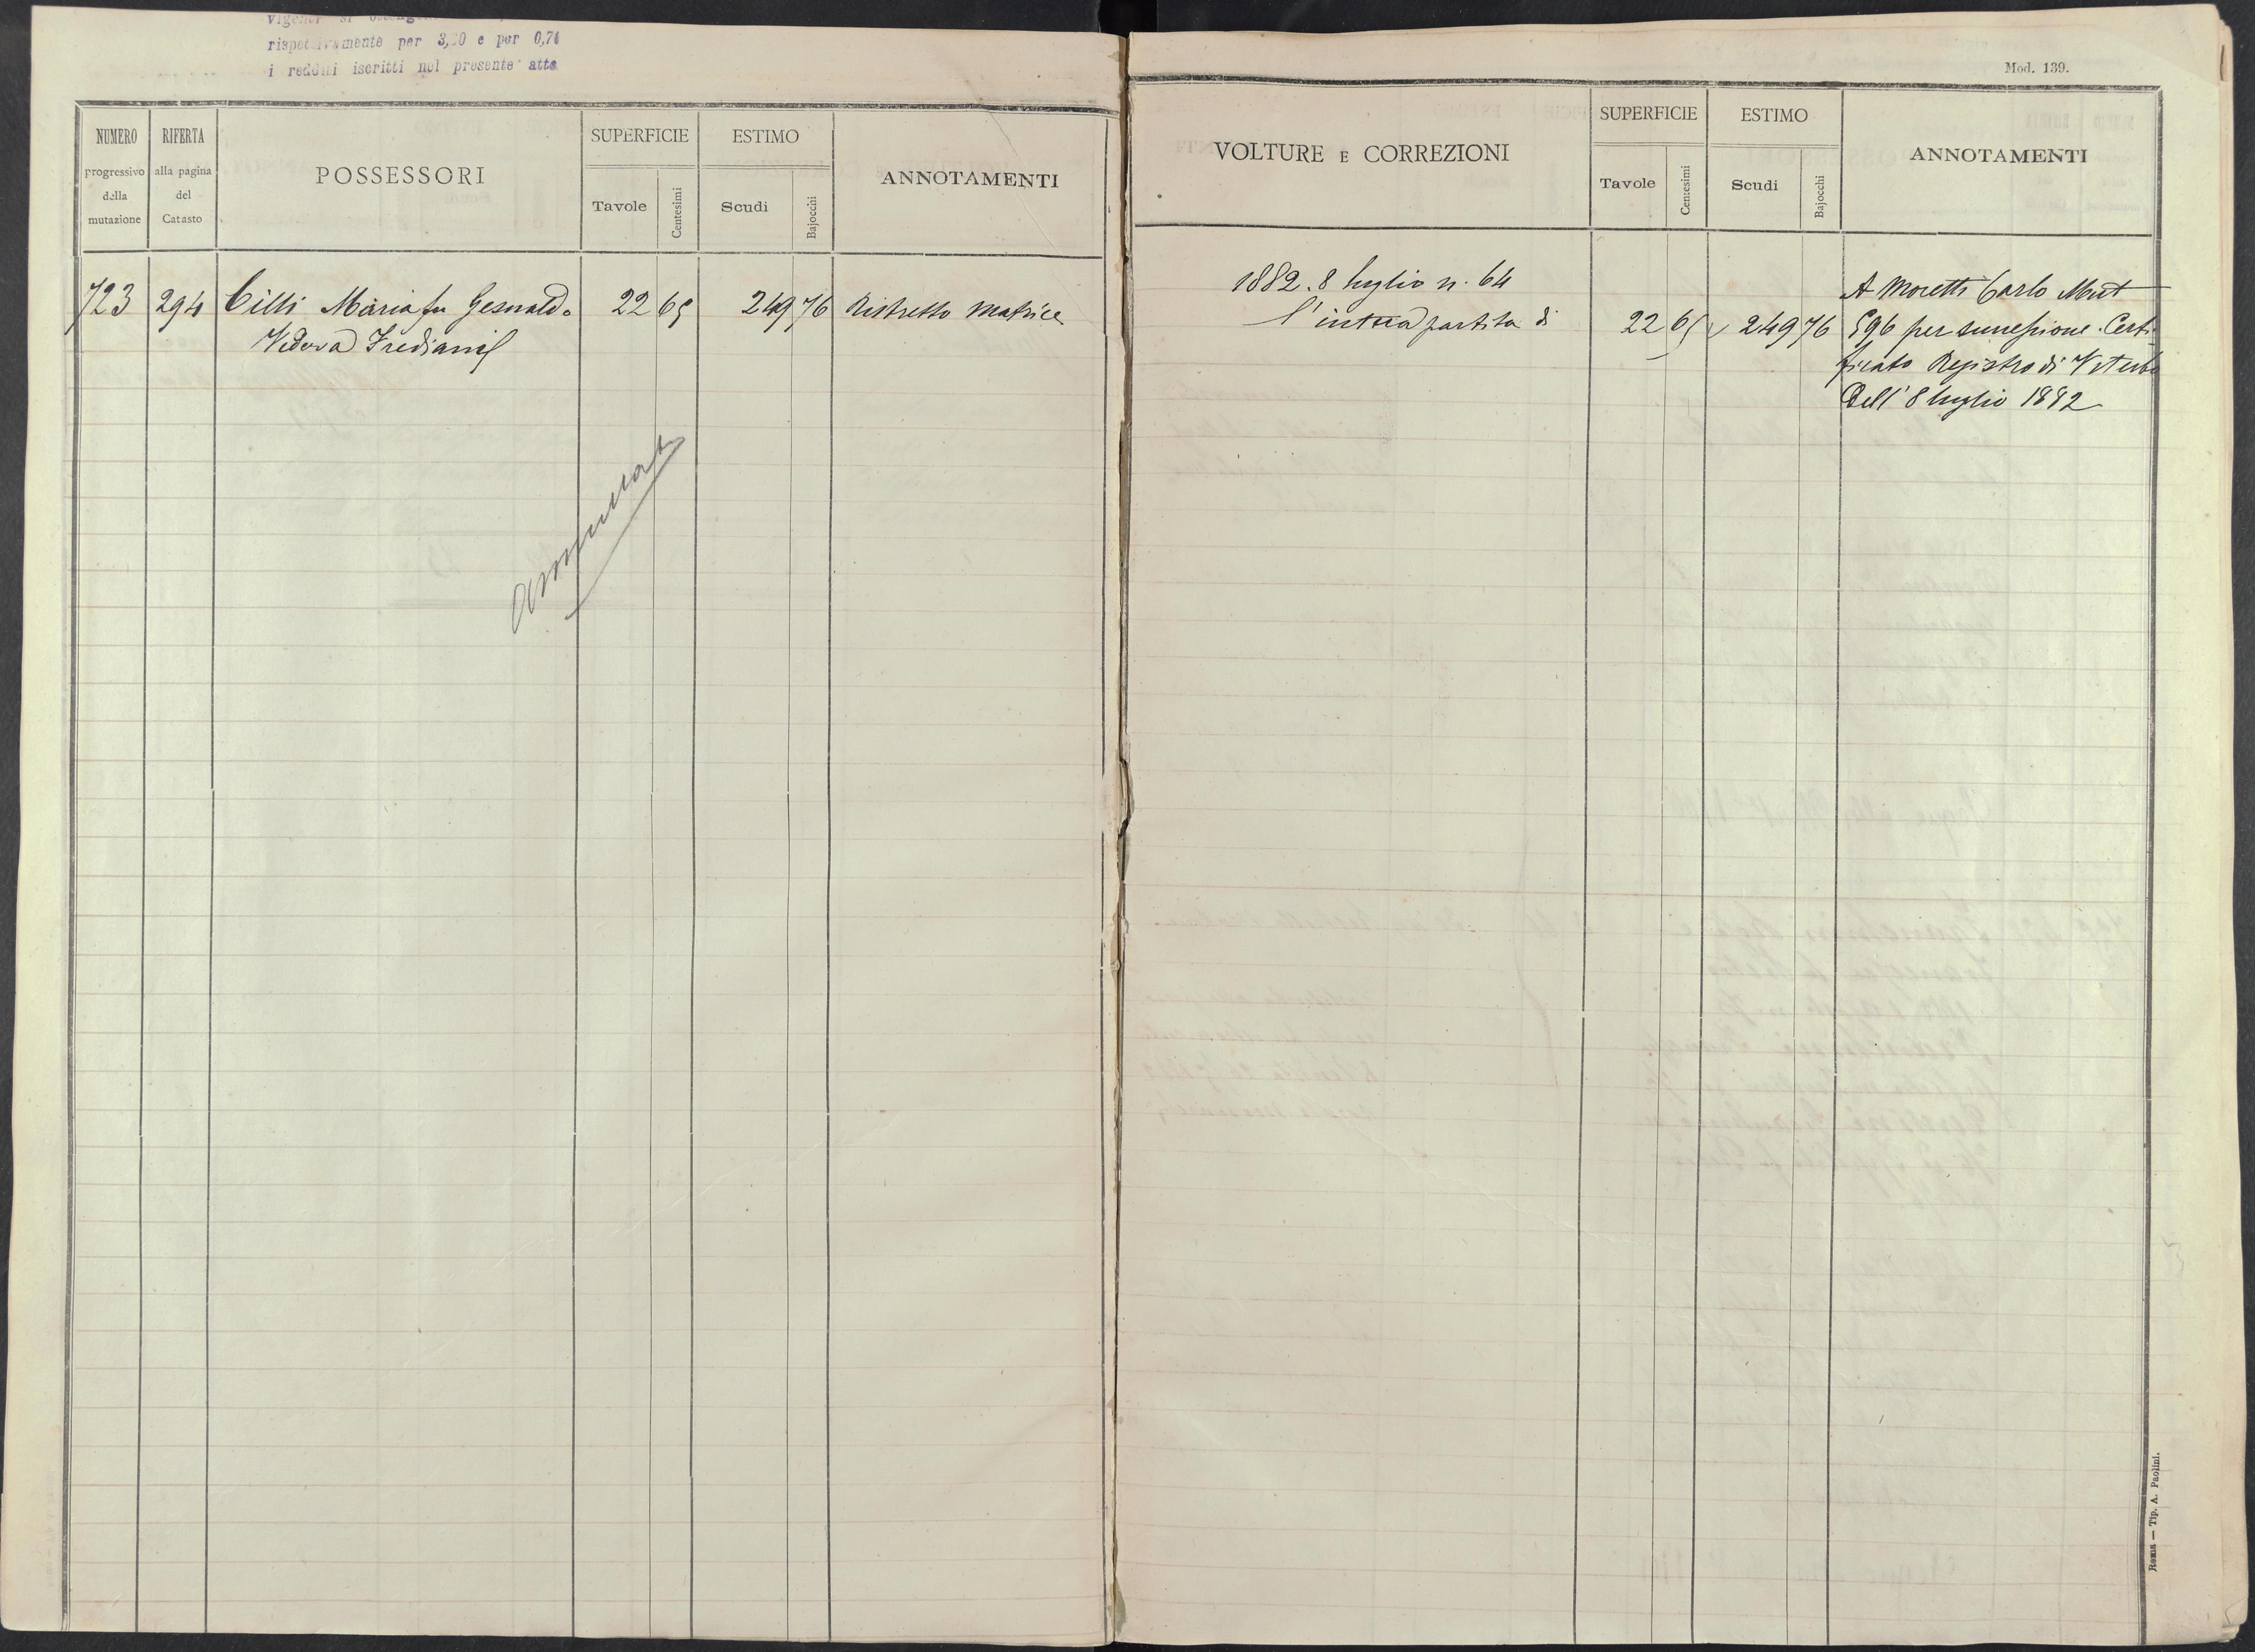 rispettivamente per 3,30 e per 0,74
i redditi iscritti nel presente atto
NUMERO
progressivo
della
mutazione
RIFERTA
alla pagina
del
Catasto
POSSESSORI
SUPERFICIE
Tavole
Centesimi
ESTIMO
Scudi
Bajocchi
ANNOTAMENTI
723 294 Cilli Maria fu Gesualdo 22 65 249 76 Ristretto Matrice
Vedova Frediani
annullata
Mod. 139.
VOLTURE E CORREZIONI
SUPERFICIE
Tavole
Centesimi
ESTIMO
Scudi
Bajocchi
ANNOTAMENTI
1882. 8 luglio n. 64
l'intera partita di 22 65 249 76
A Moretti Carlo Mut
596 per successione. Certi-
ficato Registro di Viterbo
dell' 8 luglio 1882
Roma — Tip. A. Paolini.